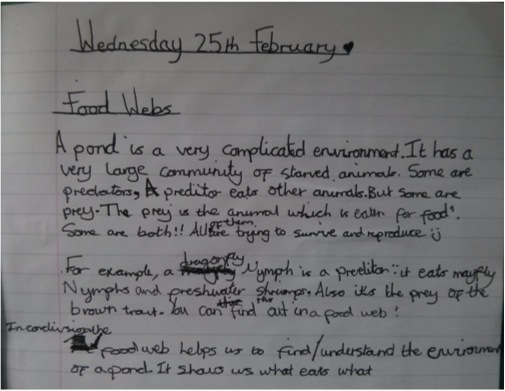 Wednesday 25th February
Food Webs
A pond is a very complicated environment. It has a
very large community of starved animals. Some are
predators, A preditor eats other animals. But some are
prey. The prey is the animal which is eaten for food!
Some are both!! All of them are trying to survive and reproduce
For example, a dragonfly Nymph is a preditor: it eats mayfly
Nymphs and freshwater shrimps. Also it's the prey of the
brown trout. You can find this out in a food web!
In conclusion the
food web helps us to find/understand the environment
of a pond. It shows us what eats what